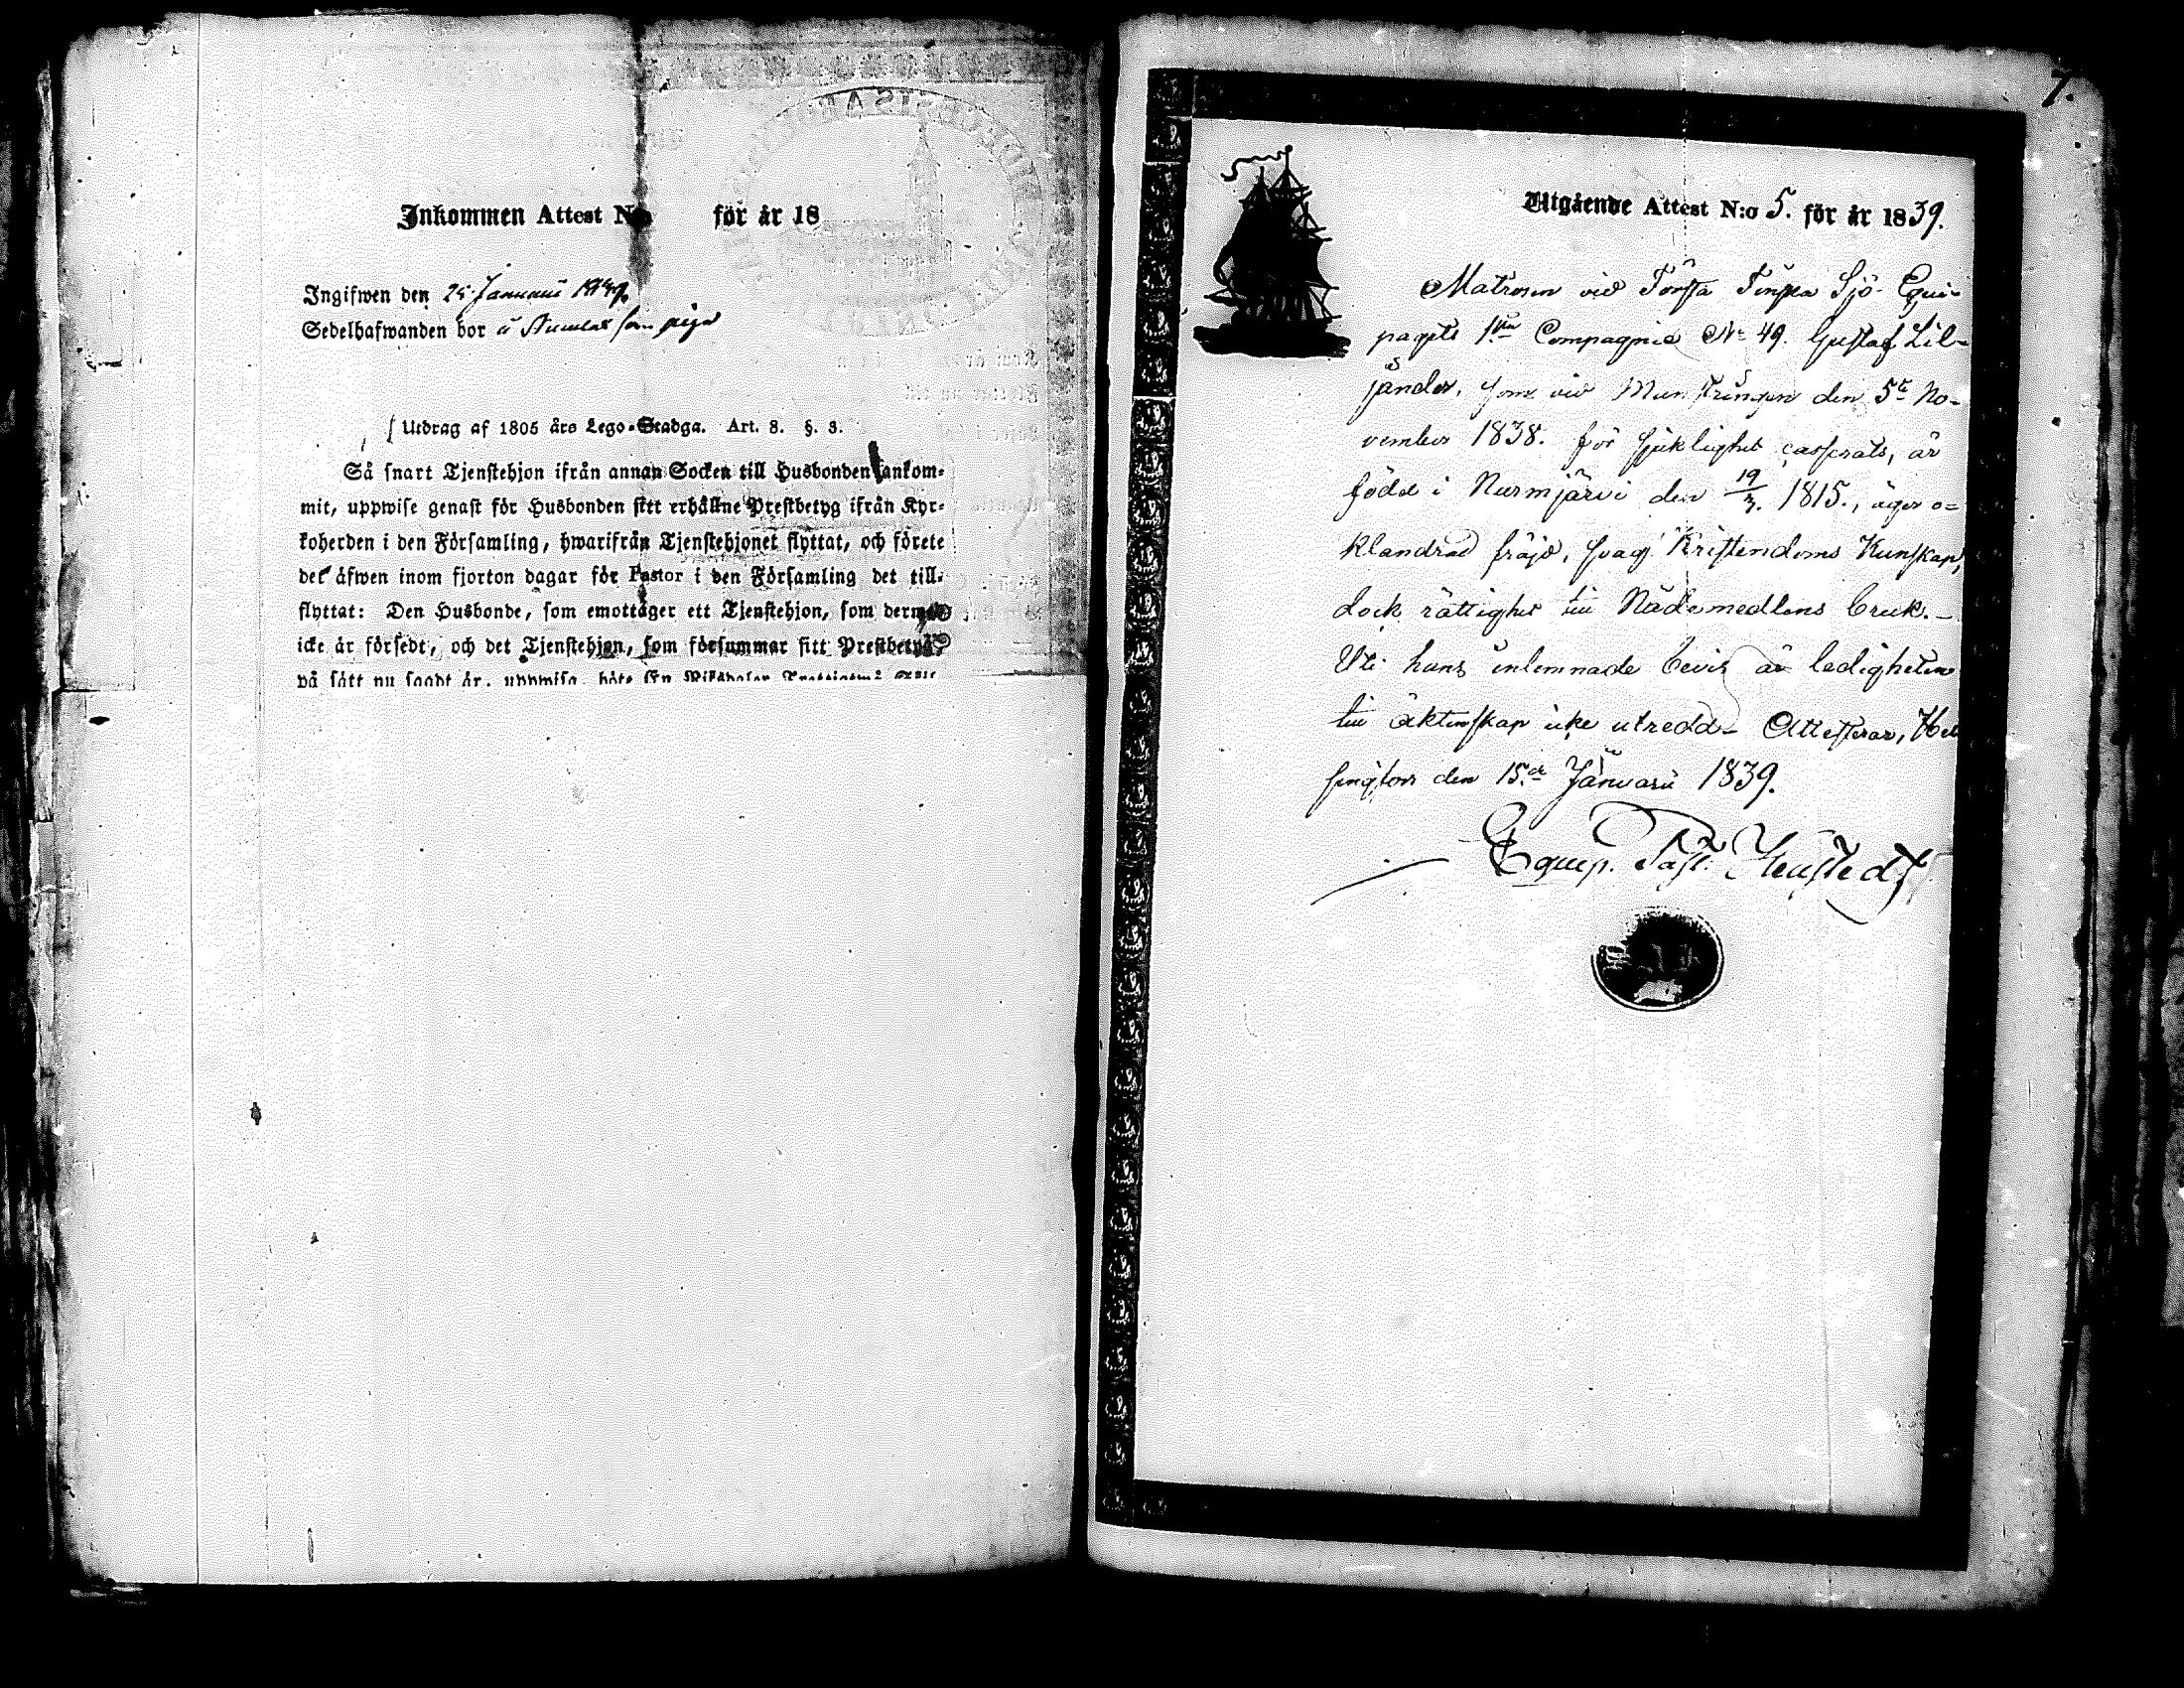 Inkommen Attest N:o för år 18
Ingifwen den 25 Januarii 1839.
Sedelhafwanden bor å som piga
Utdrag af 1805 års Lego-Stadga. Art. 3. §. 3.
Så snart Tjenstehjon ifrån annan Socken till Husbonden ankom-
mit, uppwise genast för Husbonden sitt erhållne Prestbetyg ifrån Kyr-
koherden i den Församling, hwarifrån Tjenstehjonet flyttat, och förete
det äfwen inom fjorton dagar för Pastor i den Församling det till-
flyttat: Den Husbonde, som emottager ett Tjenstehjon, som dermed
icke är försedt, och det Tjenstehjon, som försummar sitt Prestbetyg,
på sätt nu sagdt är, uppwisa, böte
7.
Utgående Attest N:o 5. för år 1839.
Matrosen vid Första Finska Sjö-Equi-
pagets 1sta Compagnie No 49. Gustaf Lil-
jander, som vid Munstringen den 5te No-
vember 1838. för sjuklighet casserats, är
född i Nurmjärvi den 19/3. 1815., äger o-
klandrad fräjd, svag Kristendoms Kunskap,
dock rättighet till Nådemedlens bruk. -
Uti hans inlemnade bevis är ledigheten
till äktenskap icke utredd - Attesterar, Hel
singfors den 15de Januarii 1839.
Equip. Past.